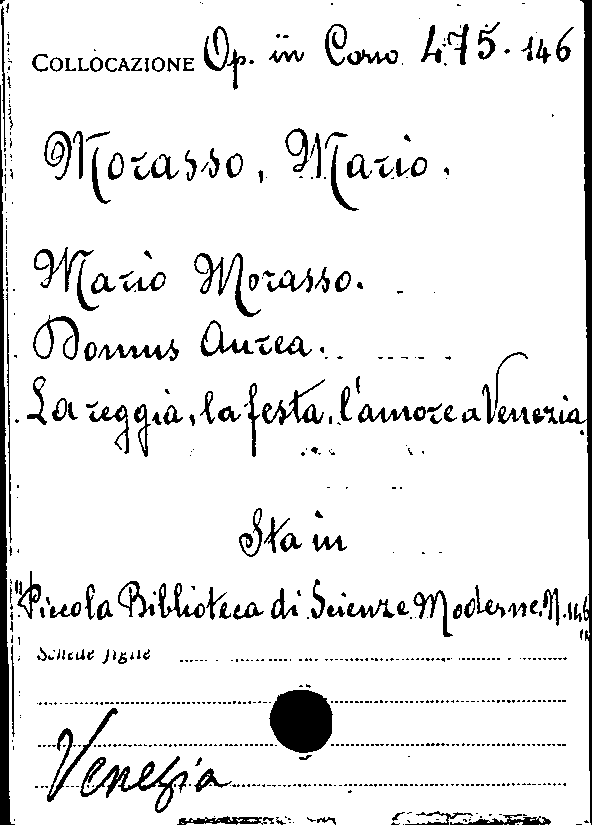 COLLOCAZIONE Op. in Corso 475. 146
Morasso, Mario.
Mario Morasso.
Domus Aurea.
La reggia, la festa, l'amore a Venezia.
Sta in
"Piccola Biblioteca di Scienze Moderne. N. 146"
Schede figlie
Venezia